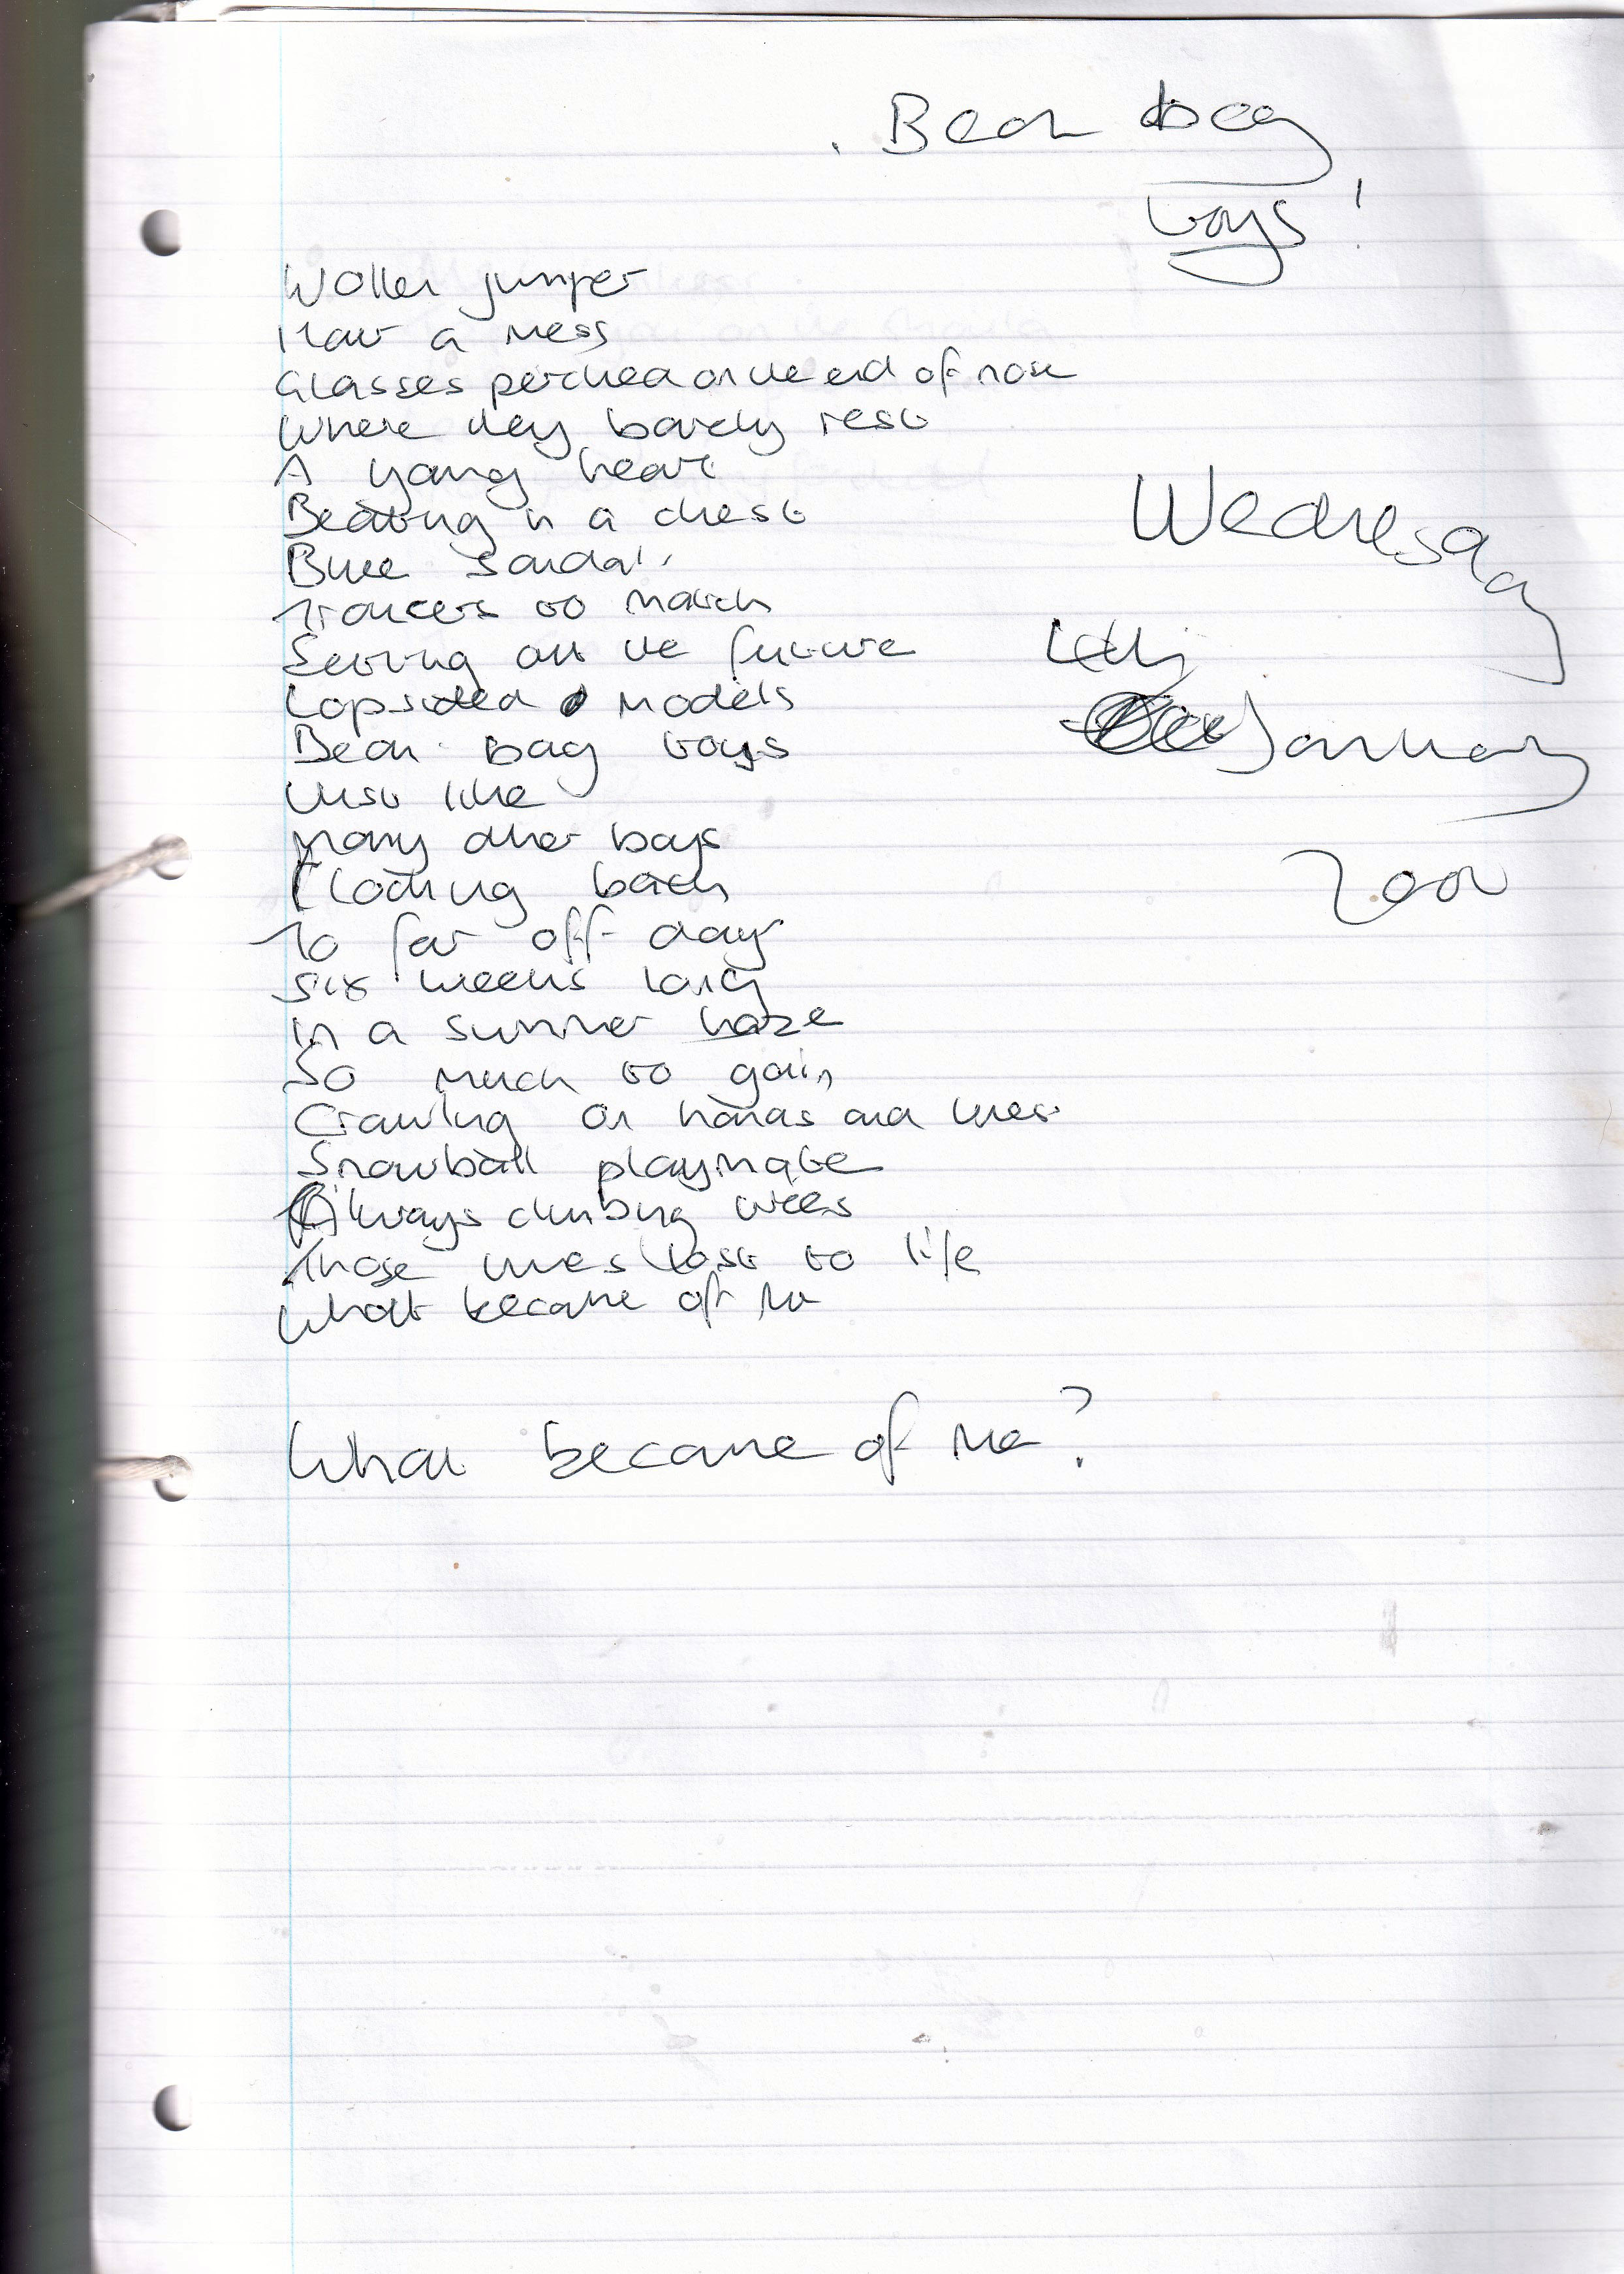 Bean bag
toys!
Wollen jumper
Hair a mess
Glasses perched on the end of nose
Where they barely rest
A young heart
Beating in a chest
Blue sandals
Trousers to match
Setting out the future
Lopsided models
Bean bag toys
Just like
many other boys
Floating back
To far off days
Six weeks long
In a summer haze
So much to gain
Crawling on hands and knees
Snowball playmate
Always climbing trees
Those times lost to life
What became of me
What became of me?
Wednesday
January